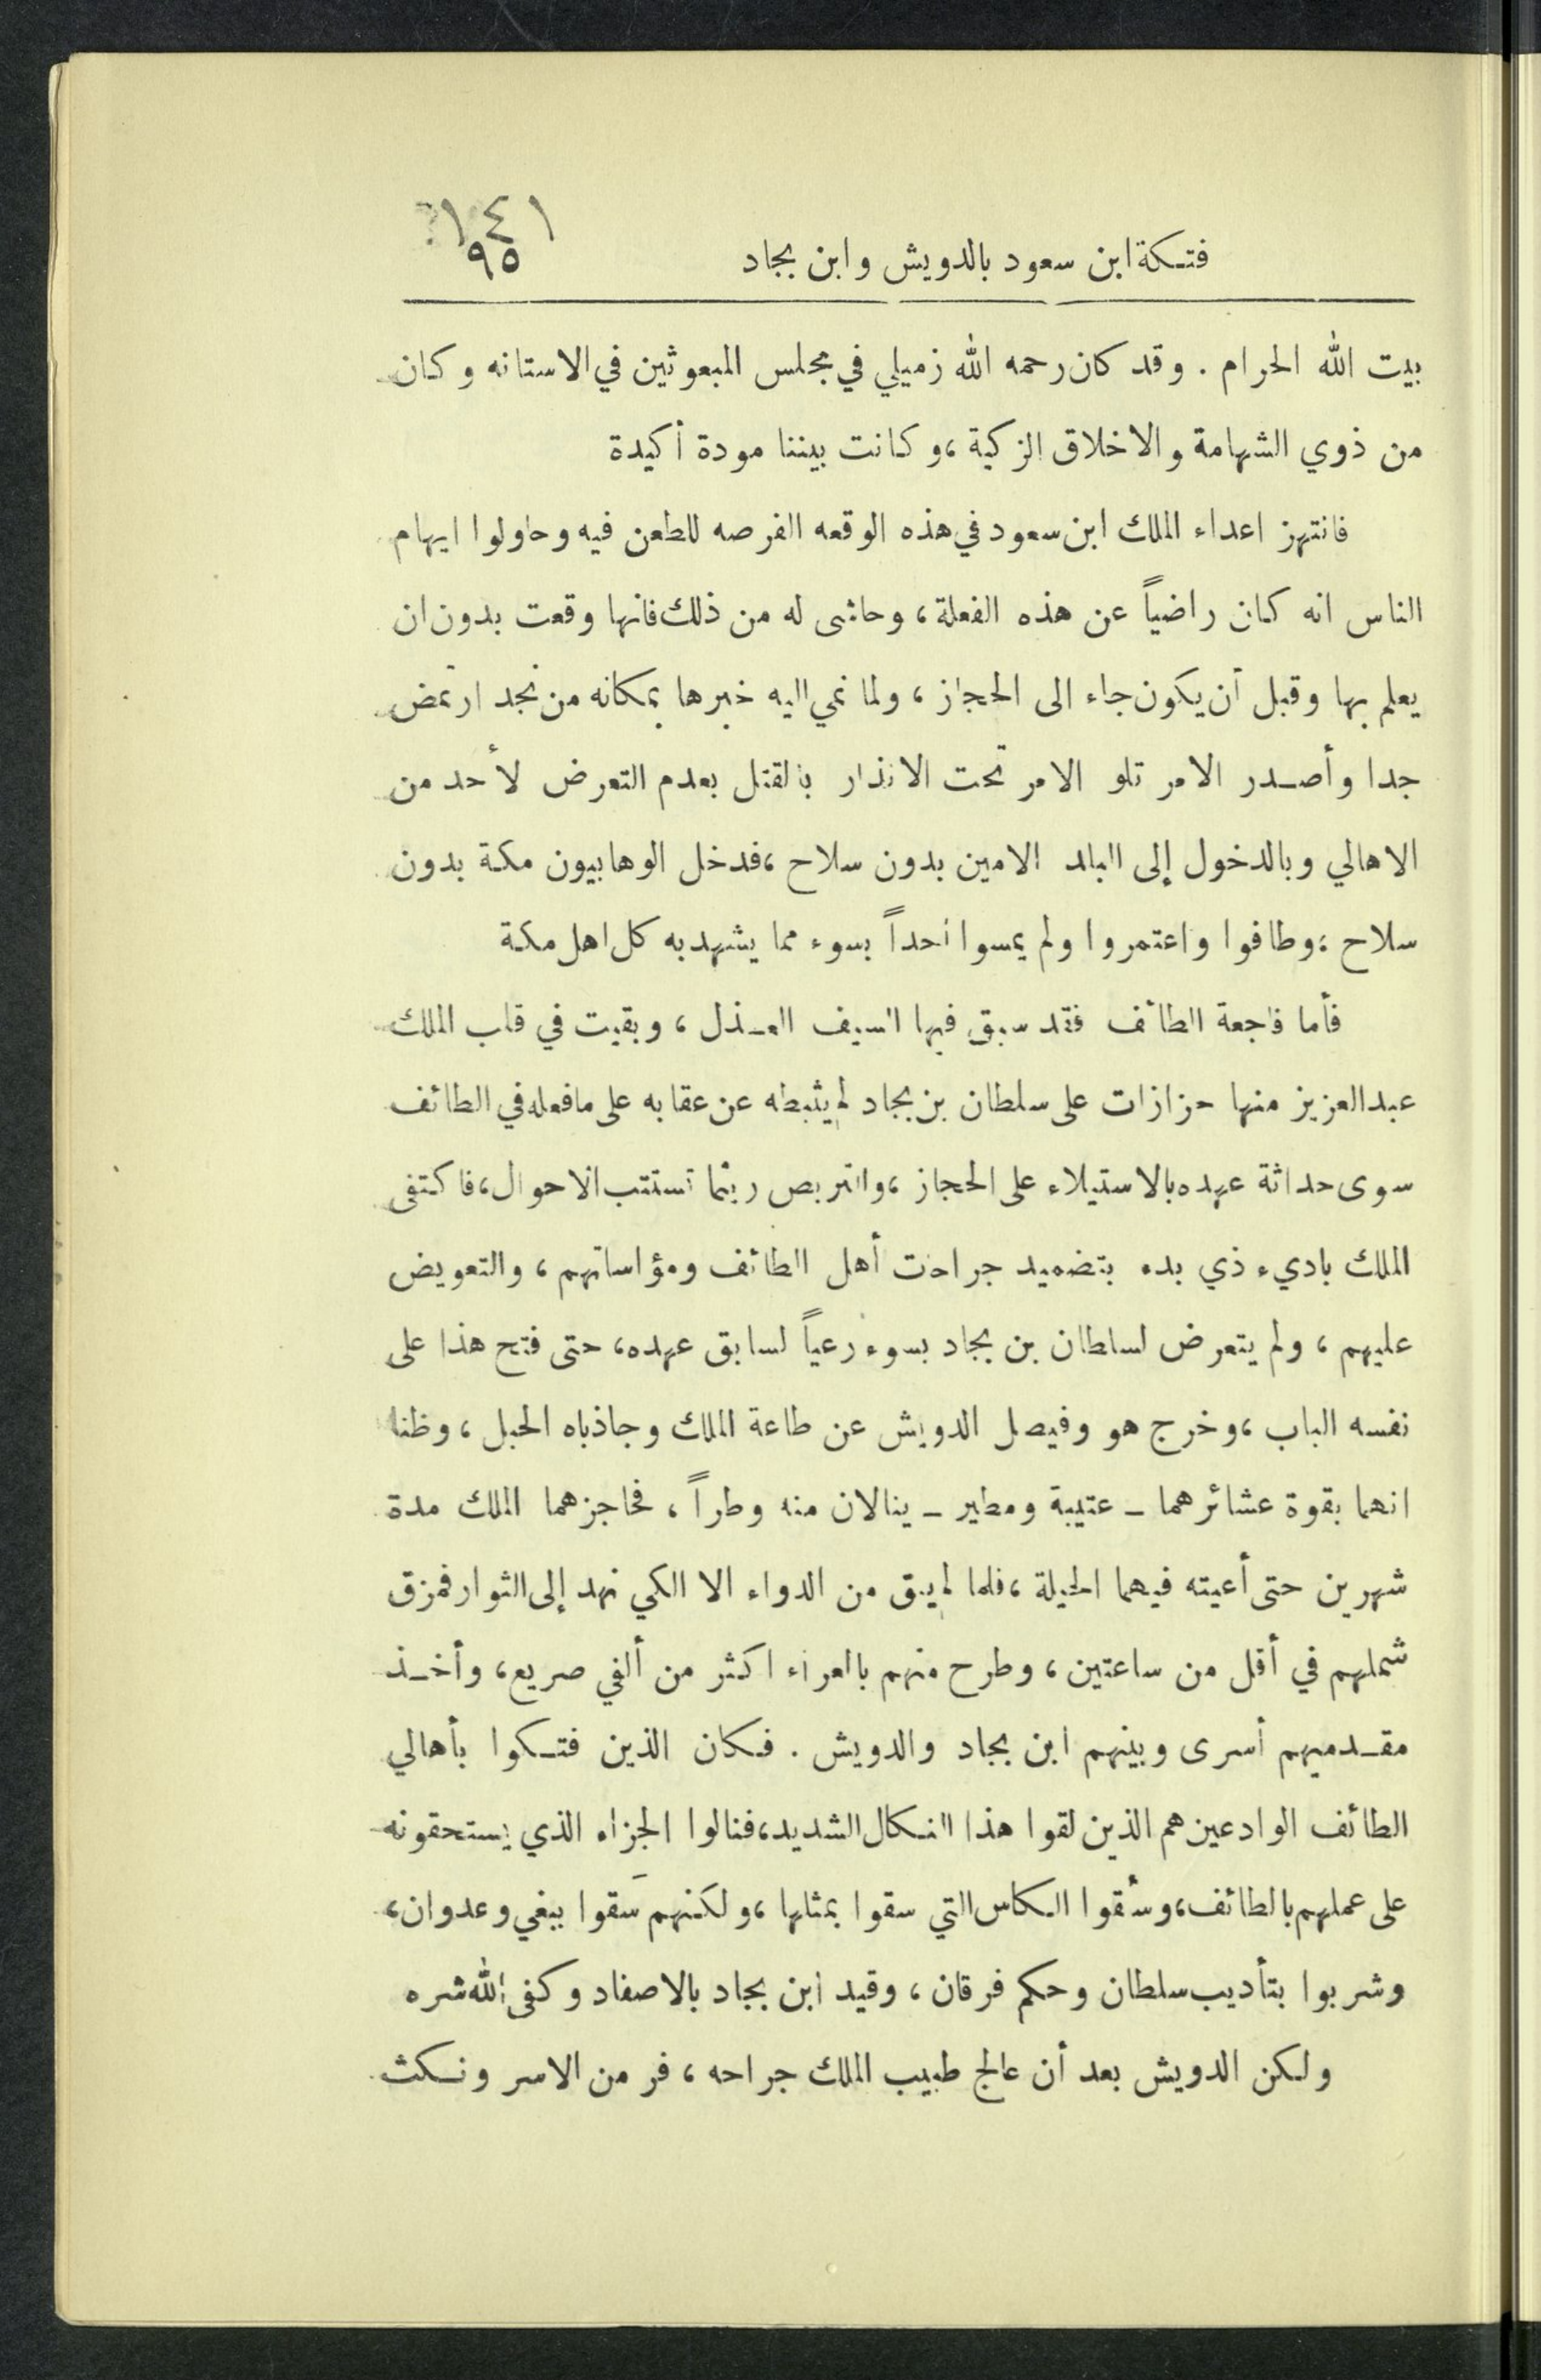 ١٤١
فتكة ابن سعود بالدويش وابن بجاد
٩٥
بيت الله الحرام . وقد كان رحمه الله زميلي في مجلس المبعوثين في الاستانه وكان
من ذوي الشهامة والاخلاق الزكية ، وكانت بيننا مودة أكيدة
فانتهز اعداء الملك ابن سعود في هذه الوقعه الفرصه للطعن فيه وحاولوا ايهام
الناس انه كان راضياً عن هذه الفعلة ، وحاشى له من ذلك فانها وقعت بدون ان
يعلم بها وقبل أن يكون جاء الى الحجاز ، ولما نمي اليه خبرها بمكانه من نجد ارتمض
جدا وأصدر الامر تلو الامر تحت الانذار بالقتل بعدم التعرض لأحد من
الاهالي وبالدخول إلى البلد الامين بدون سلاح ، فدخل الوهابيون مكة بدون
سلاح ، وطافوا واعتمروا ولم يمسوا أحداً بسوء مما يشهد به كل اهل مكة
فأما فاجعة الطائف فقد سبق فيها السيف العذل ، وبقيت في قلب الملك
عبدالعزيز منها حزازات على سلطان بن بجاد لم يثبطه عن عقابه على ما فعله في الطائف
سوى حداثة عهده بالاستيلاء على الحجاز ، والتربص ريثما تستتب الاحوال ، فاكتفى
الملك باديء ذي بدء بتضميد جراحات أهل الطائف ومؤاساتهم ، والتعويض
عليهم ، ولم يتعرض لسلطان بن بجاد بسوء رعياً لسابق عهده ، حتى فتح هذا على
نفسه الباب ، وخرج هو وفيصل الدويش عن طاعة الملك وجاذباه الحبل ، وظنا
انهما بقوة عشائرهما - عتيبة ومطير - ينالان منه وطراً ، فحاجزهما الملك مدة
شهرين حتى أعيته فيهما الحيلة ، فلما لم يبق من الدواء الا الكي نهد إلى الثوار فمزق
شملهم في أقل من ساعتين ، وطرح منهم بالعراء اكثر من ألفي صريع ، وأخذ
مقدميهم أسرى وبينهم ابن بجاد والدويش . فكان الذين فتكوا بأهالي
الطائف الوادعين هم الذين لقوا هذا النكال الشديد ، فنالوا الجزاء الذي يستحقونه
على عملهم بالطائف ، وسُقوا الكاس التي سقوا بمثلها ، ولكنهم سَقوا ببغي وعدوان ،
وشربوا بتأديب سلطان وحكم فرقان ، وقيد ابن بجاد بالاصفاد وكفى الله شره
ولكن الدويش بعد أن عالج طبيب الملك جراحه ، فر من الاسر ونكث